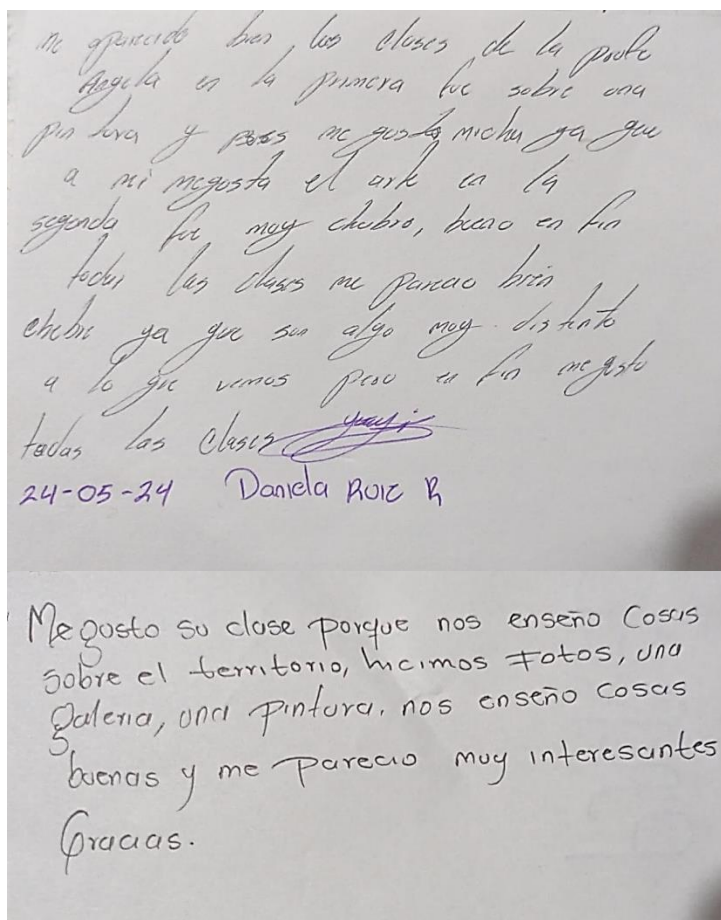 me aparecido bien, las clases de la profe
Angela en la primera fue sobre una
pintura y pues me gusto micho ya que
a mi megusta el arte en la
segunda fue muy chebro, bueno en fin
todas las clases me parecio bien
chebre ya que son algo muy distinto
a lo que vemos pero en fin me gusto
todas las clases
24-05-24 Daniela Ruiz R
Me gusto su clase porque nos enseño Cosas
sobre el territorio, hicimos Fotos, una
galeria, una pintura, nos enseño cosas
buenas y me parecio muy interesantes
Gracias.